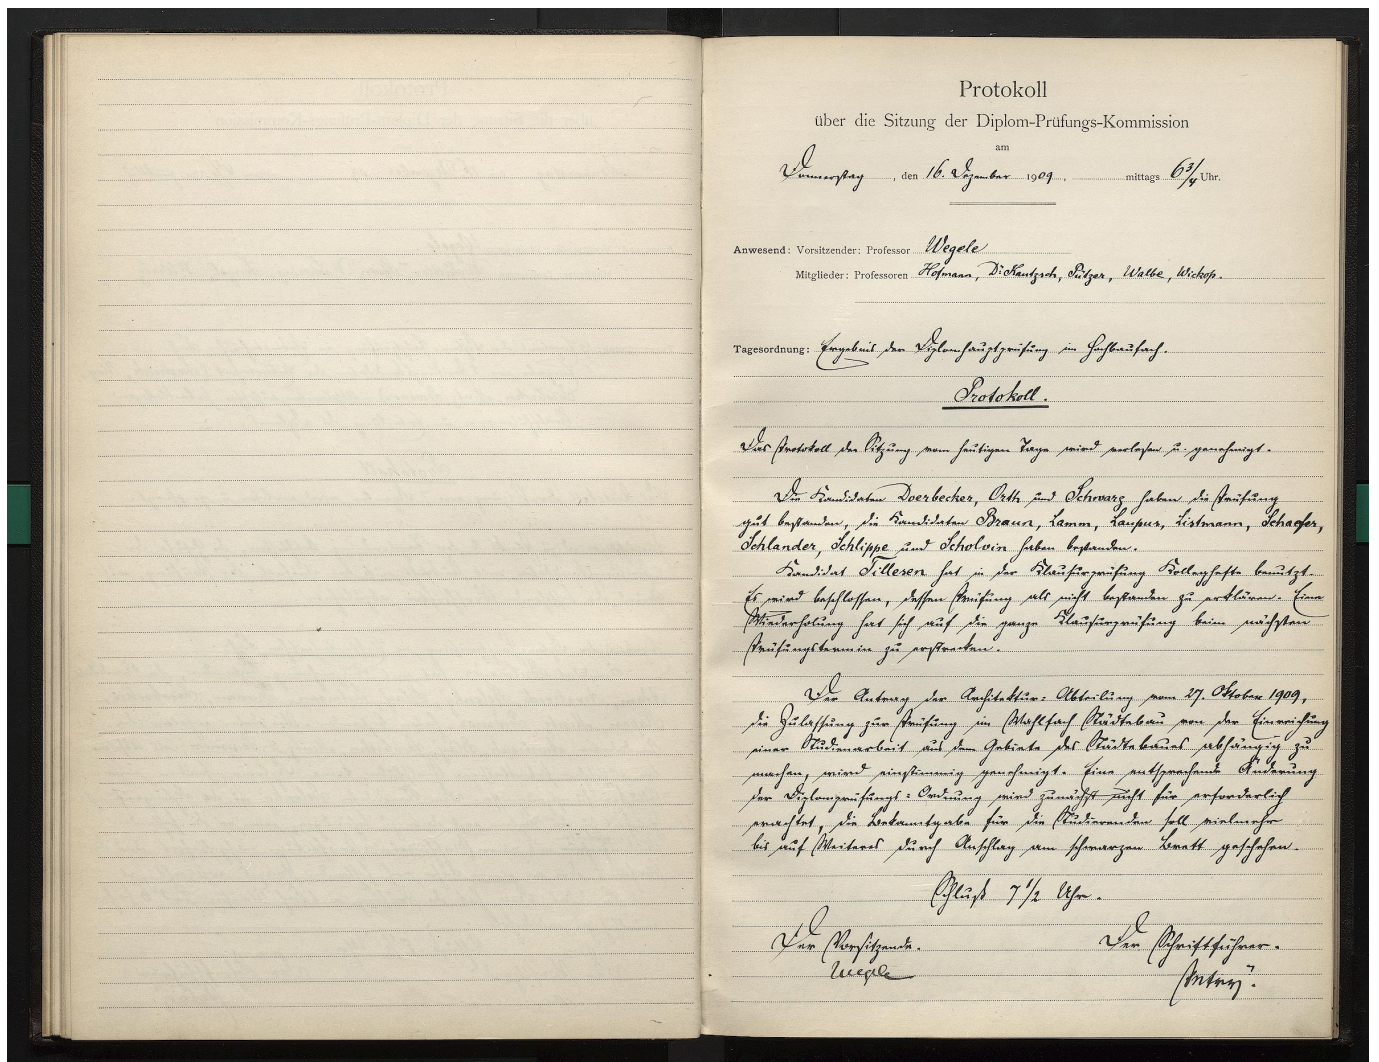 Protokoll
über die Sitzung der Diplom-Prüfungs-Kommission
am
Donnerstag, den 16. Dezember 1909, mittags 6 3/4 Uhr.
Anwesend: Vorsitzender: Professor Wegele
Mitglieder: Professoren Hofmann, Dr. Kautzsch, Pützer, Walbe, Wickop.
Tagesordnung: Ergebnis der Diplomhauptprüfung im Hochbaufach.
Protokoll.
Das Protokoll der Sitzung vom heutigen Tage wird verlesen u. genehmigt.
Die Kandidaten Doerbecker, Orth und Schwarz haben die Prüfung
gut bestanden, die Kandidaten Braun, Lamm, Laupus, Listmann, Schaefer,
Schlander, Schlippe und Scholvin haben bestanden.
Kandidat Tillesen hat in der Klausurprüfung Kolleghefte benutzt.
Es wird beschlossen, dessen Prüfung als nicht bestanden zu erklären. Eine
Wiederholung hat sich auf die ganze Klausurprüfung beim nächsten
Prüfungstermin zu erstrecken.
Der Antrag der Architektur=Abteilung vom 27. Oktober 1909,
die Zulassung zur Prüfung im Wahlfach Städtebau von der Einreichung
einer Studienarbeit aus dem Gebiete des Städtebaues abhängig zu
machen, wird einstimmig genehmigt. Eine entsprechende Änderung
der Diplomprüfungs=Ordnung wird zunächst nicht für erforderlich
erachtet, die Bekanntgabe für die Studierenden soll vielmehr
bis auf Weiteres durch Anschlag am schwarzen Brett geschehen.
Schluß 7 1/2 Uhr.
Der Vorsitzende. Der Schriftführer.
Wegele